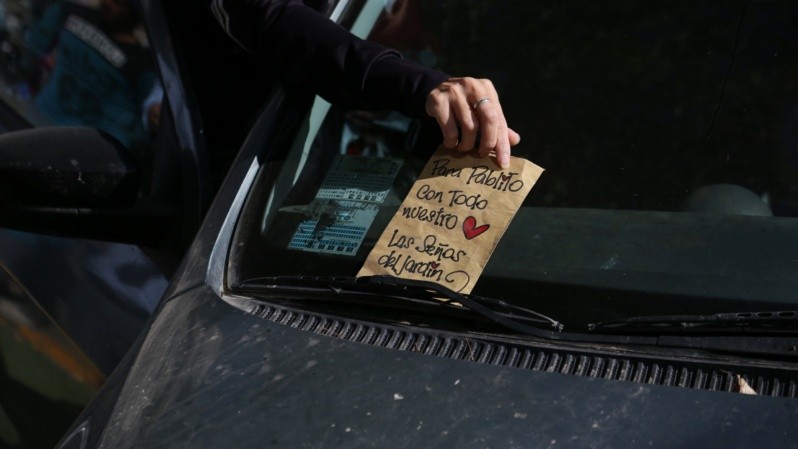 Para Pablito
Con Todo
nuestro
Las Señas
del Jardin